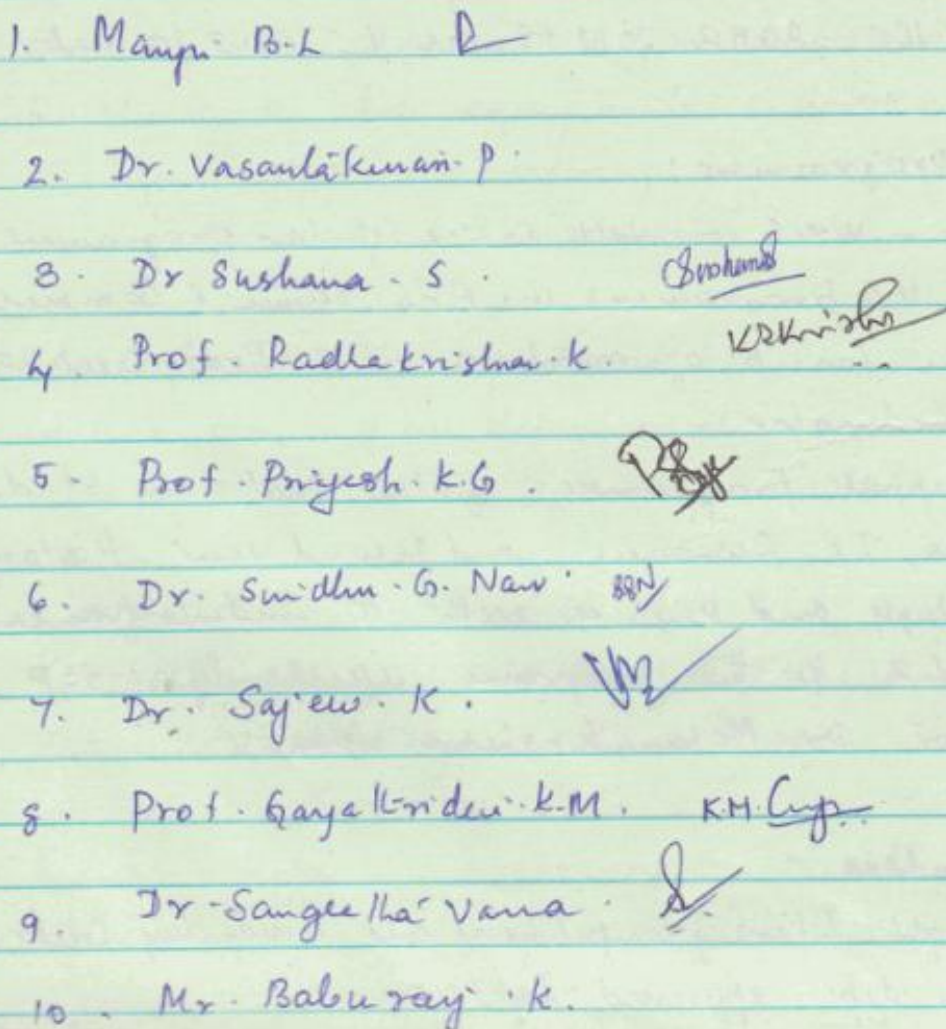 1. Manju B.L
2. Dr. Vasantakumari. P.
3. Dr Sushama. S.
4. Prof. Radhakrishnan. K.
5. Prof. Priyesh. K.G.
6. Dr. Sindhu. G. Nair. SGN
7. Dr. Sajeev. K.
8. Prof. Gayathridevi. K.M. K.M.
9. Dr. Sangeetha Varma.
10. Mr. Baburaj. K.